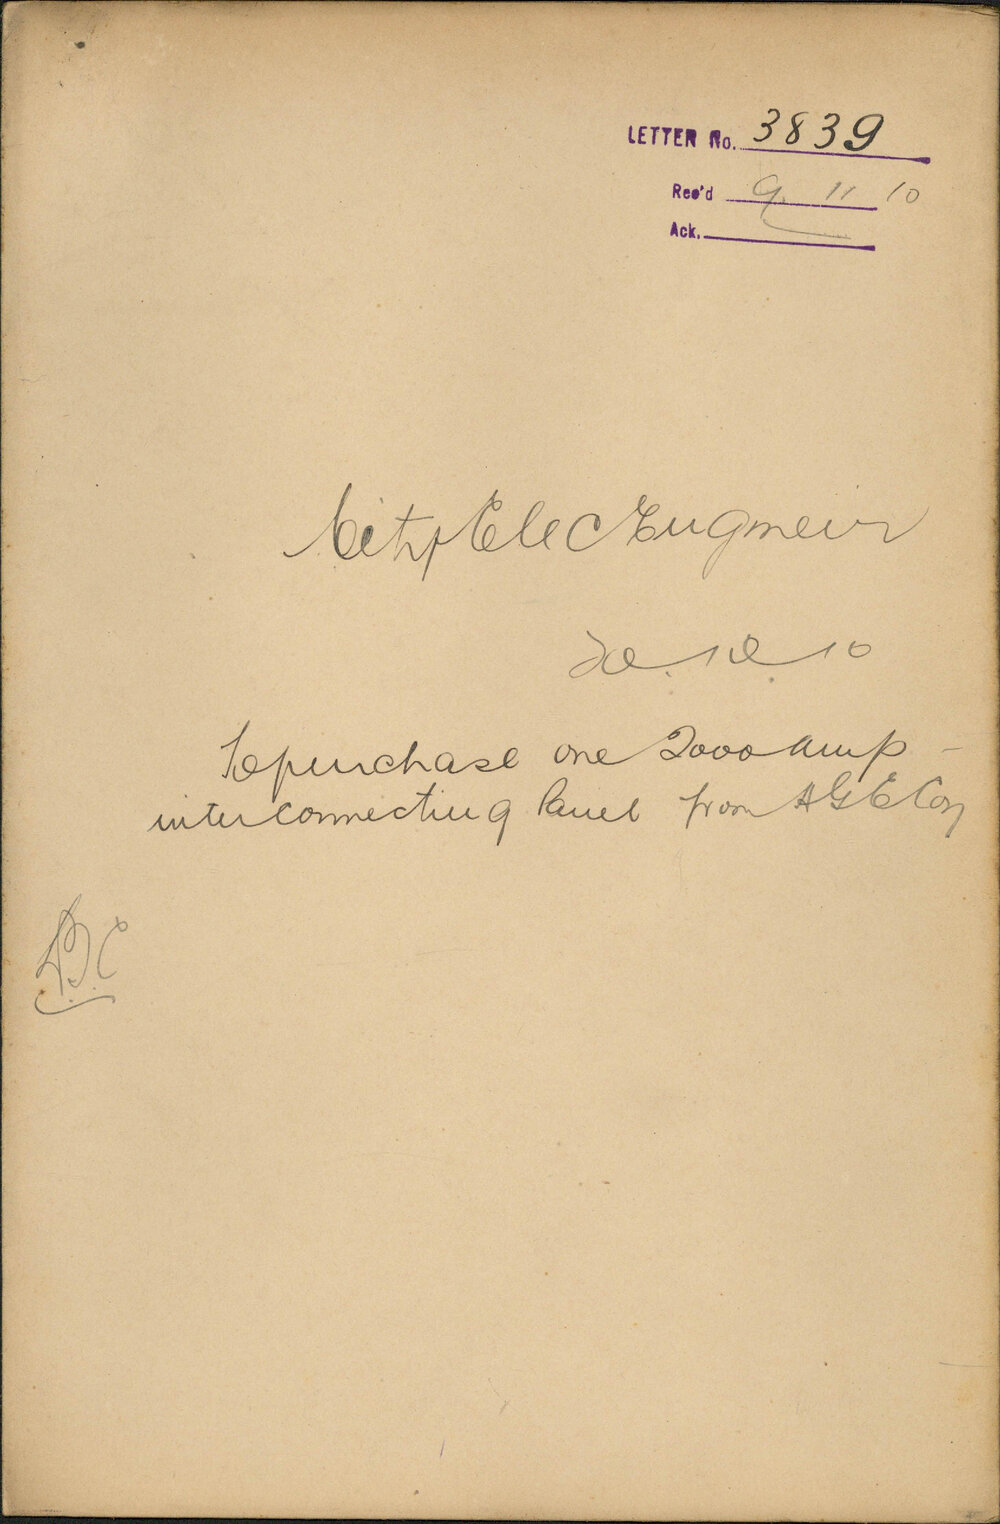 LETTER No. 3839
Rec'd 9. 11 10
Ack.
City Elec Engineer
To purchase one 2000 Amp
interconnecting Panel from A G E Coy